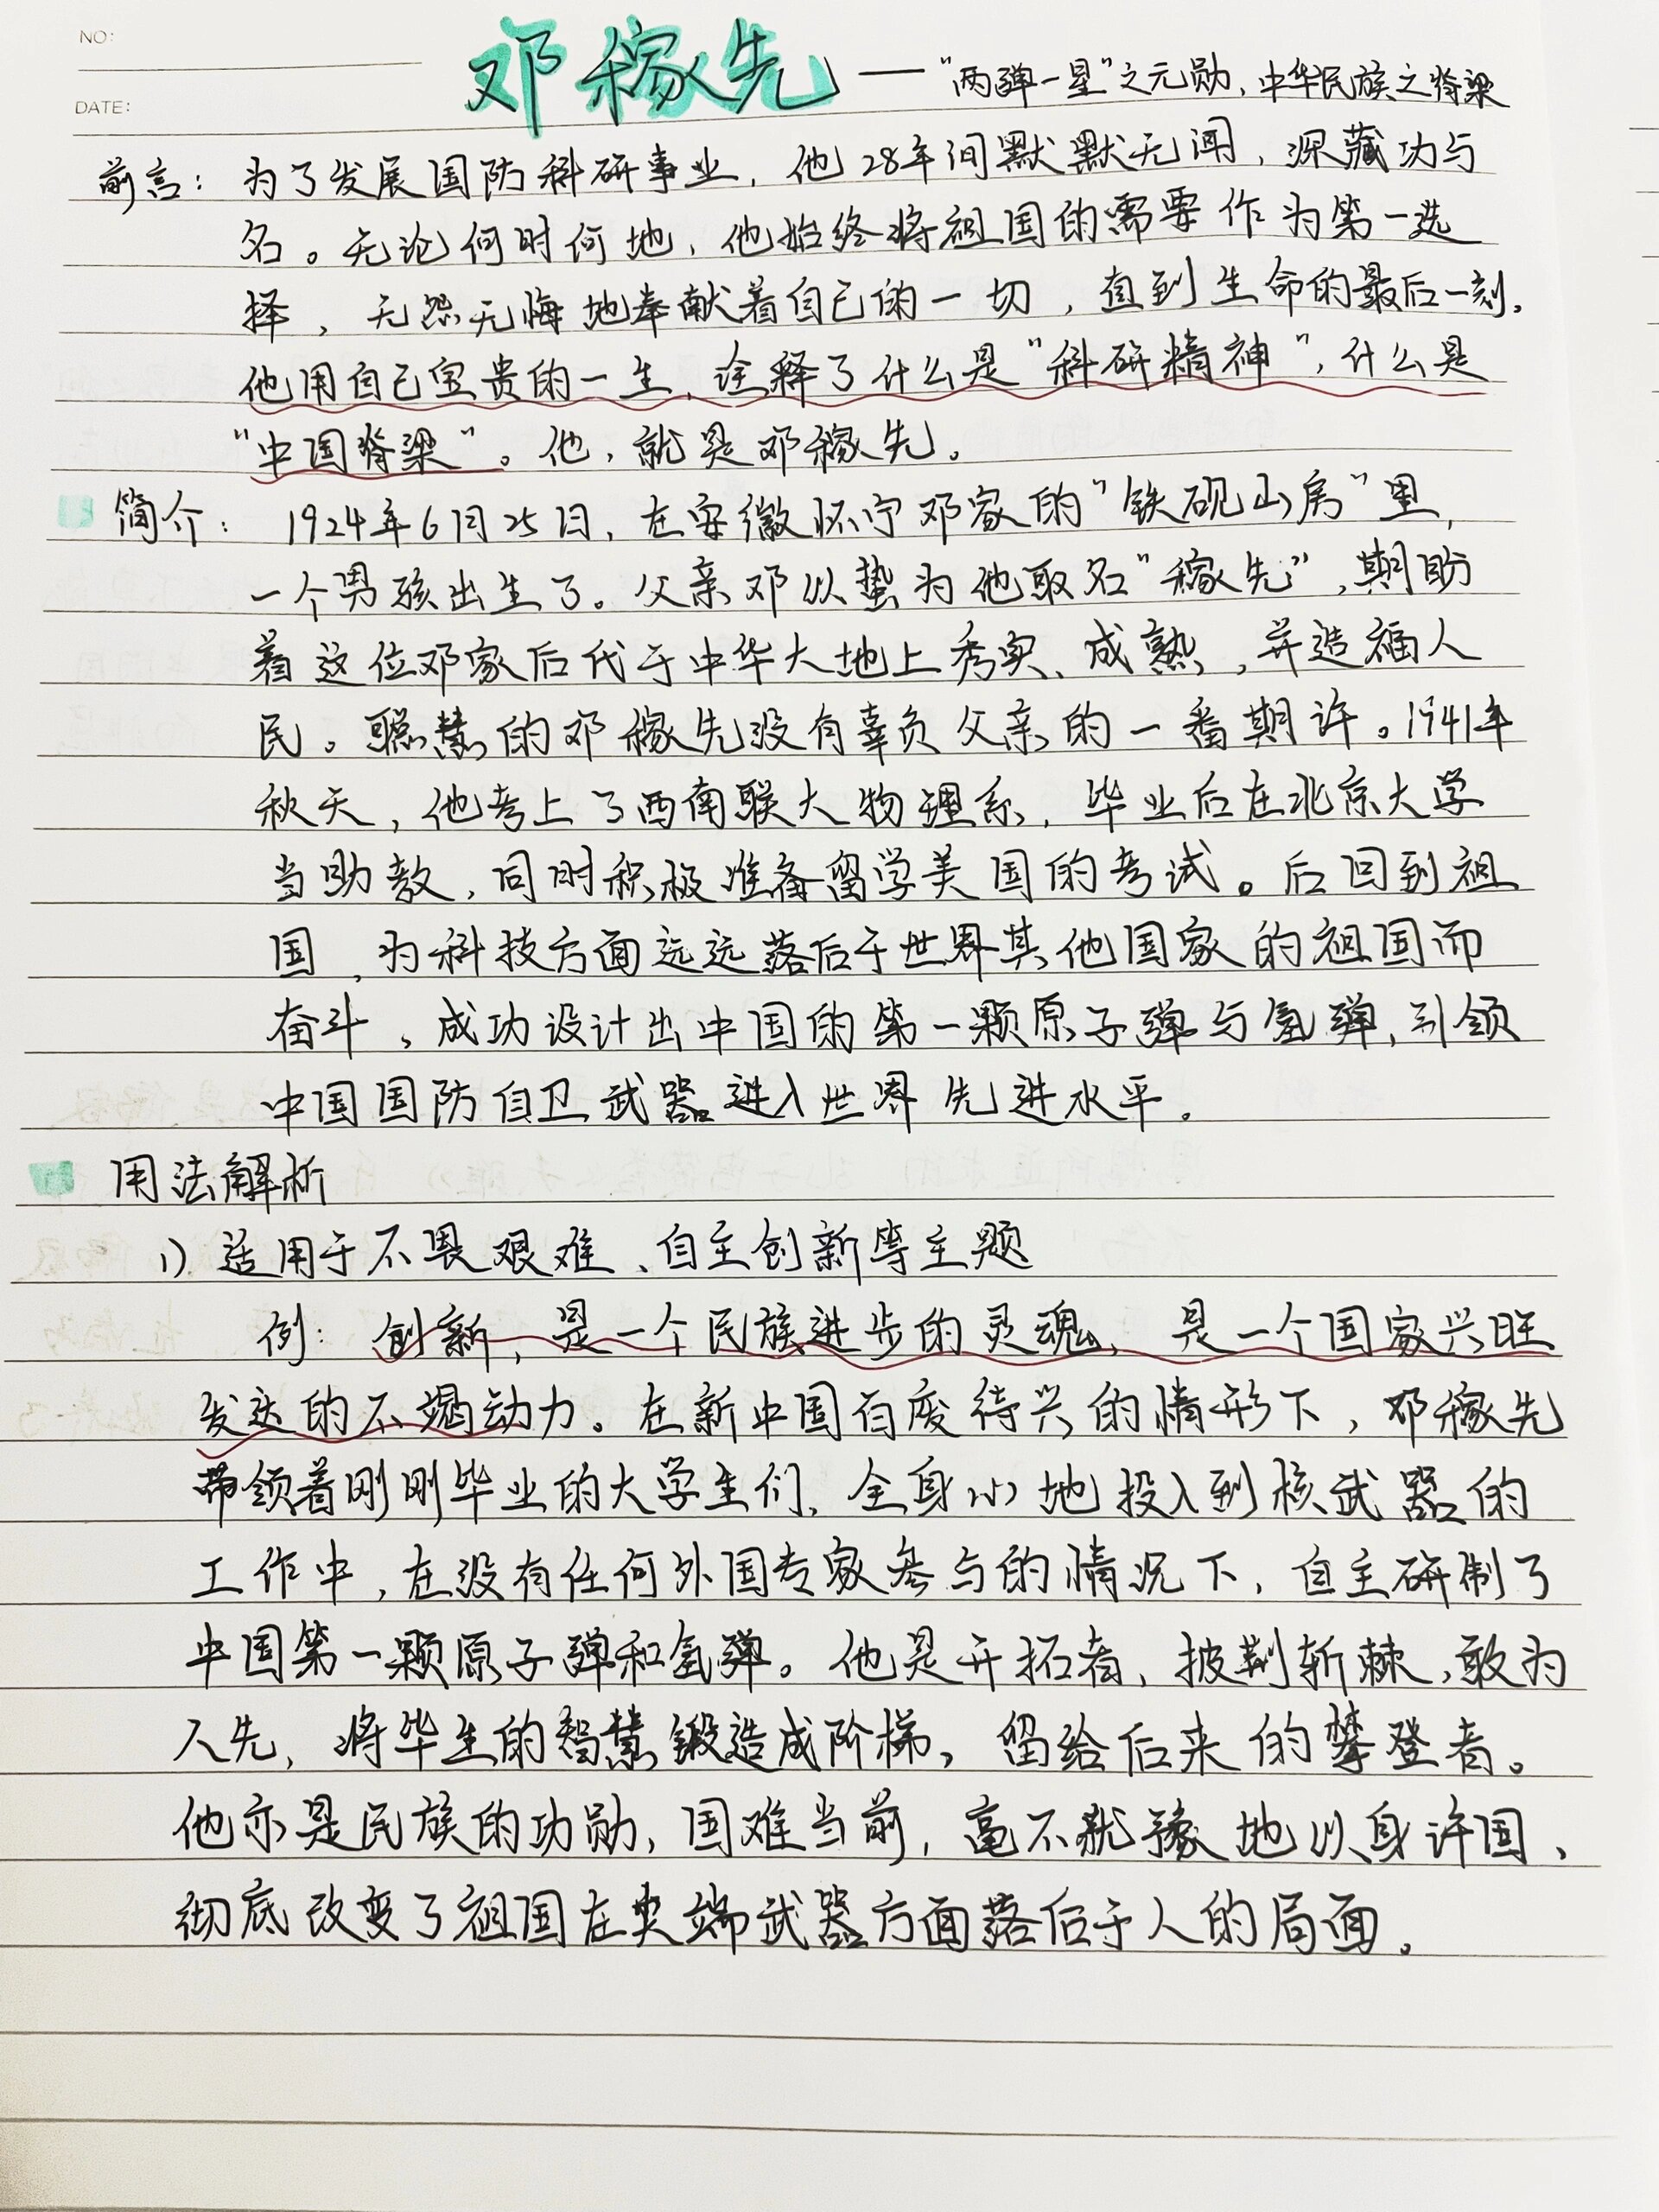 NO:
邓稼先——“两弹一星”之元勋、中华民族之脊梁
DATE:
前言：为了发展国防科研事业，他28年间默默无闻，深藏功与
名。无论何时何地，他始终将祖国的需要作为第一选
择，无怨无悔地奉献着自己的一切，直到生命的最后一刻，
他用自己宝贵的一生，诠释了什么是“科研精神”，什么是
“中国脊梁”。他，就是邓稼先。
简介：1924年6月25日，在安徽怀宁邓家的“铁砚山房”里，
一个男孩出生了。父亲邓以蛰为他取名“稼先”，期盼
着这位邓家后代于中华大地上秀实、成熟，并造福人
民。聪慧的邓稼先没有辜负父亲的一番期许。1941年
秋天，他考上了西南联大物理系，毕业后在北京大学
当助教，同时积极准备留学美国的考试。后回到祖
国，为科技方面远远落后于世界其他国家的祖国而
奋斗，成功设计出中国的第一颗原子弹与氢弹，引领
中国国防自卫武器进入世界先进水平。
用法解析
1）适用于不畏艰难、自主创新等主题
例：创新，是一个民族进步的灵魂，是一个国家兴旺
发达的不竭动力。在新中国百废待兴的情形下，邓稼先
带领着刚刚毕业的大学生们，全身心地投入到核武器的
工作中，在没有任何外国专家参与的情况下，自主研制了
中国第一颗原子弹和氢弹。他是开拓者，披荆斩棘，敢为
人先，将毕生的智慧锻造成阶梯，留给后来的攀登者。
他亦是民族的功勋，国难当前，毫不犹豫地以身许国，
彻底改变了祖国在尖端武器方面落后于人的局面。